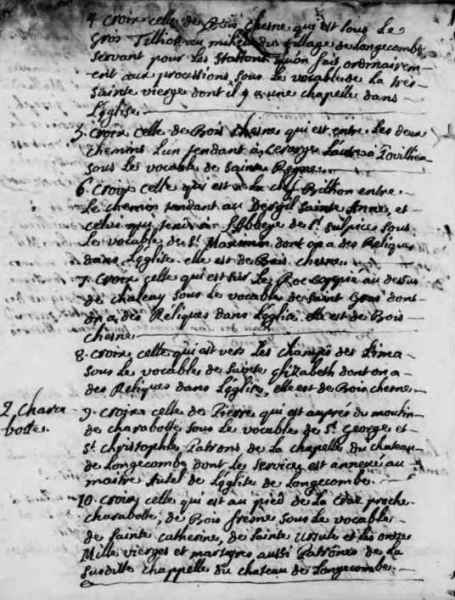 4. Croix celle de Bois chesne qui est sous le
Gros Tillion au milieu du village de Longecombe
servant pour les stations quon fait ordinairem-
ent aux processions sous le vocable de la tres
sainte vierge dont il y a une chapelle dans
L'église
5. Croix celle de Bois chesne qui est entre les deux
chemins l'un tendant a l'autre a
sous les vocable de sainte
6. Croix celle qui est a la entre
Le chemin tendant au sainte Anne, et
celui qui tend a L'abbeye de st. sulpice sous
Le vocable de st. dont on a des Reliques
dans L'eglise elle est de Bois chesne
7. Croix celle qui est sur Les Roc au dessus
de chateau sous le vocable de saint dont
on a des Reliques dans L'eglise est de Bois
chesne
8. Croix celle qui est vers Les champs des
sous le vocable de sainte Elizabeth dont on a
des Reliques dans L'église, elle est de Bois chesne
2. Charabotte.
9. Croix celle de Pierre qui est aupres du moulin
de charabotte sous le vocable de st. George et
st. christophle Patrons de La chapelle du chateau
de Longecombe dont les services est annexé au
maistre Autel de L'eglise de Longecombe
10. Croix celle qui est au pied de La proche
charabotte, de Bois fresne sous le vocable
de sainte catherine, de sainte ursule et les onze
Mille vierges et martyres aussi Patrones de la
susditte chappelle du chateau de Longecombe